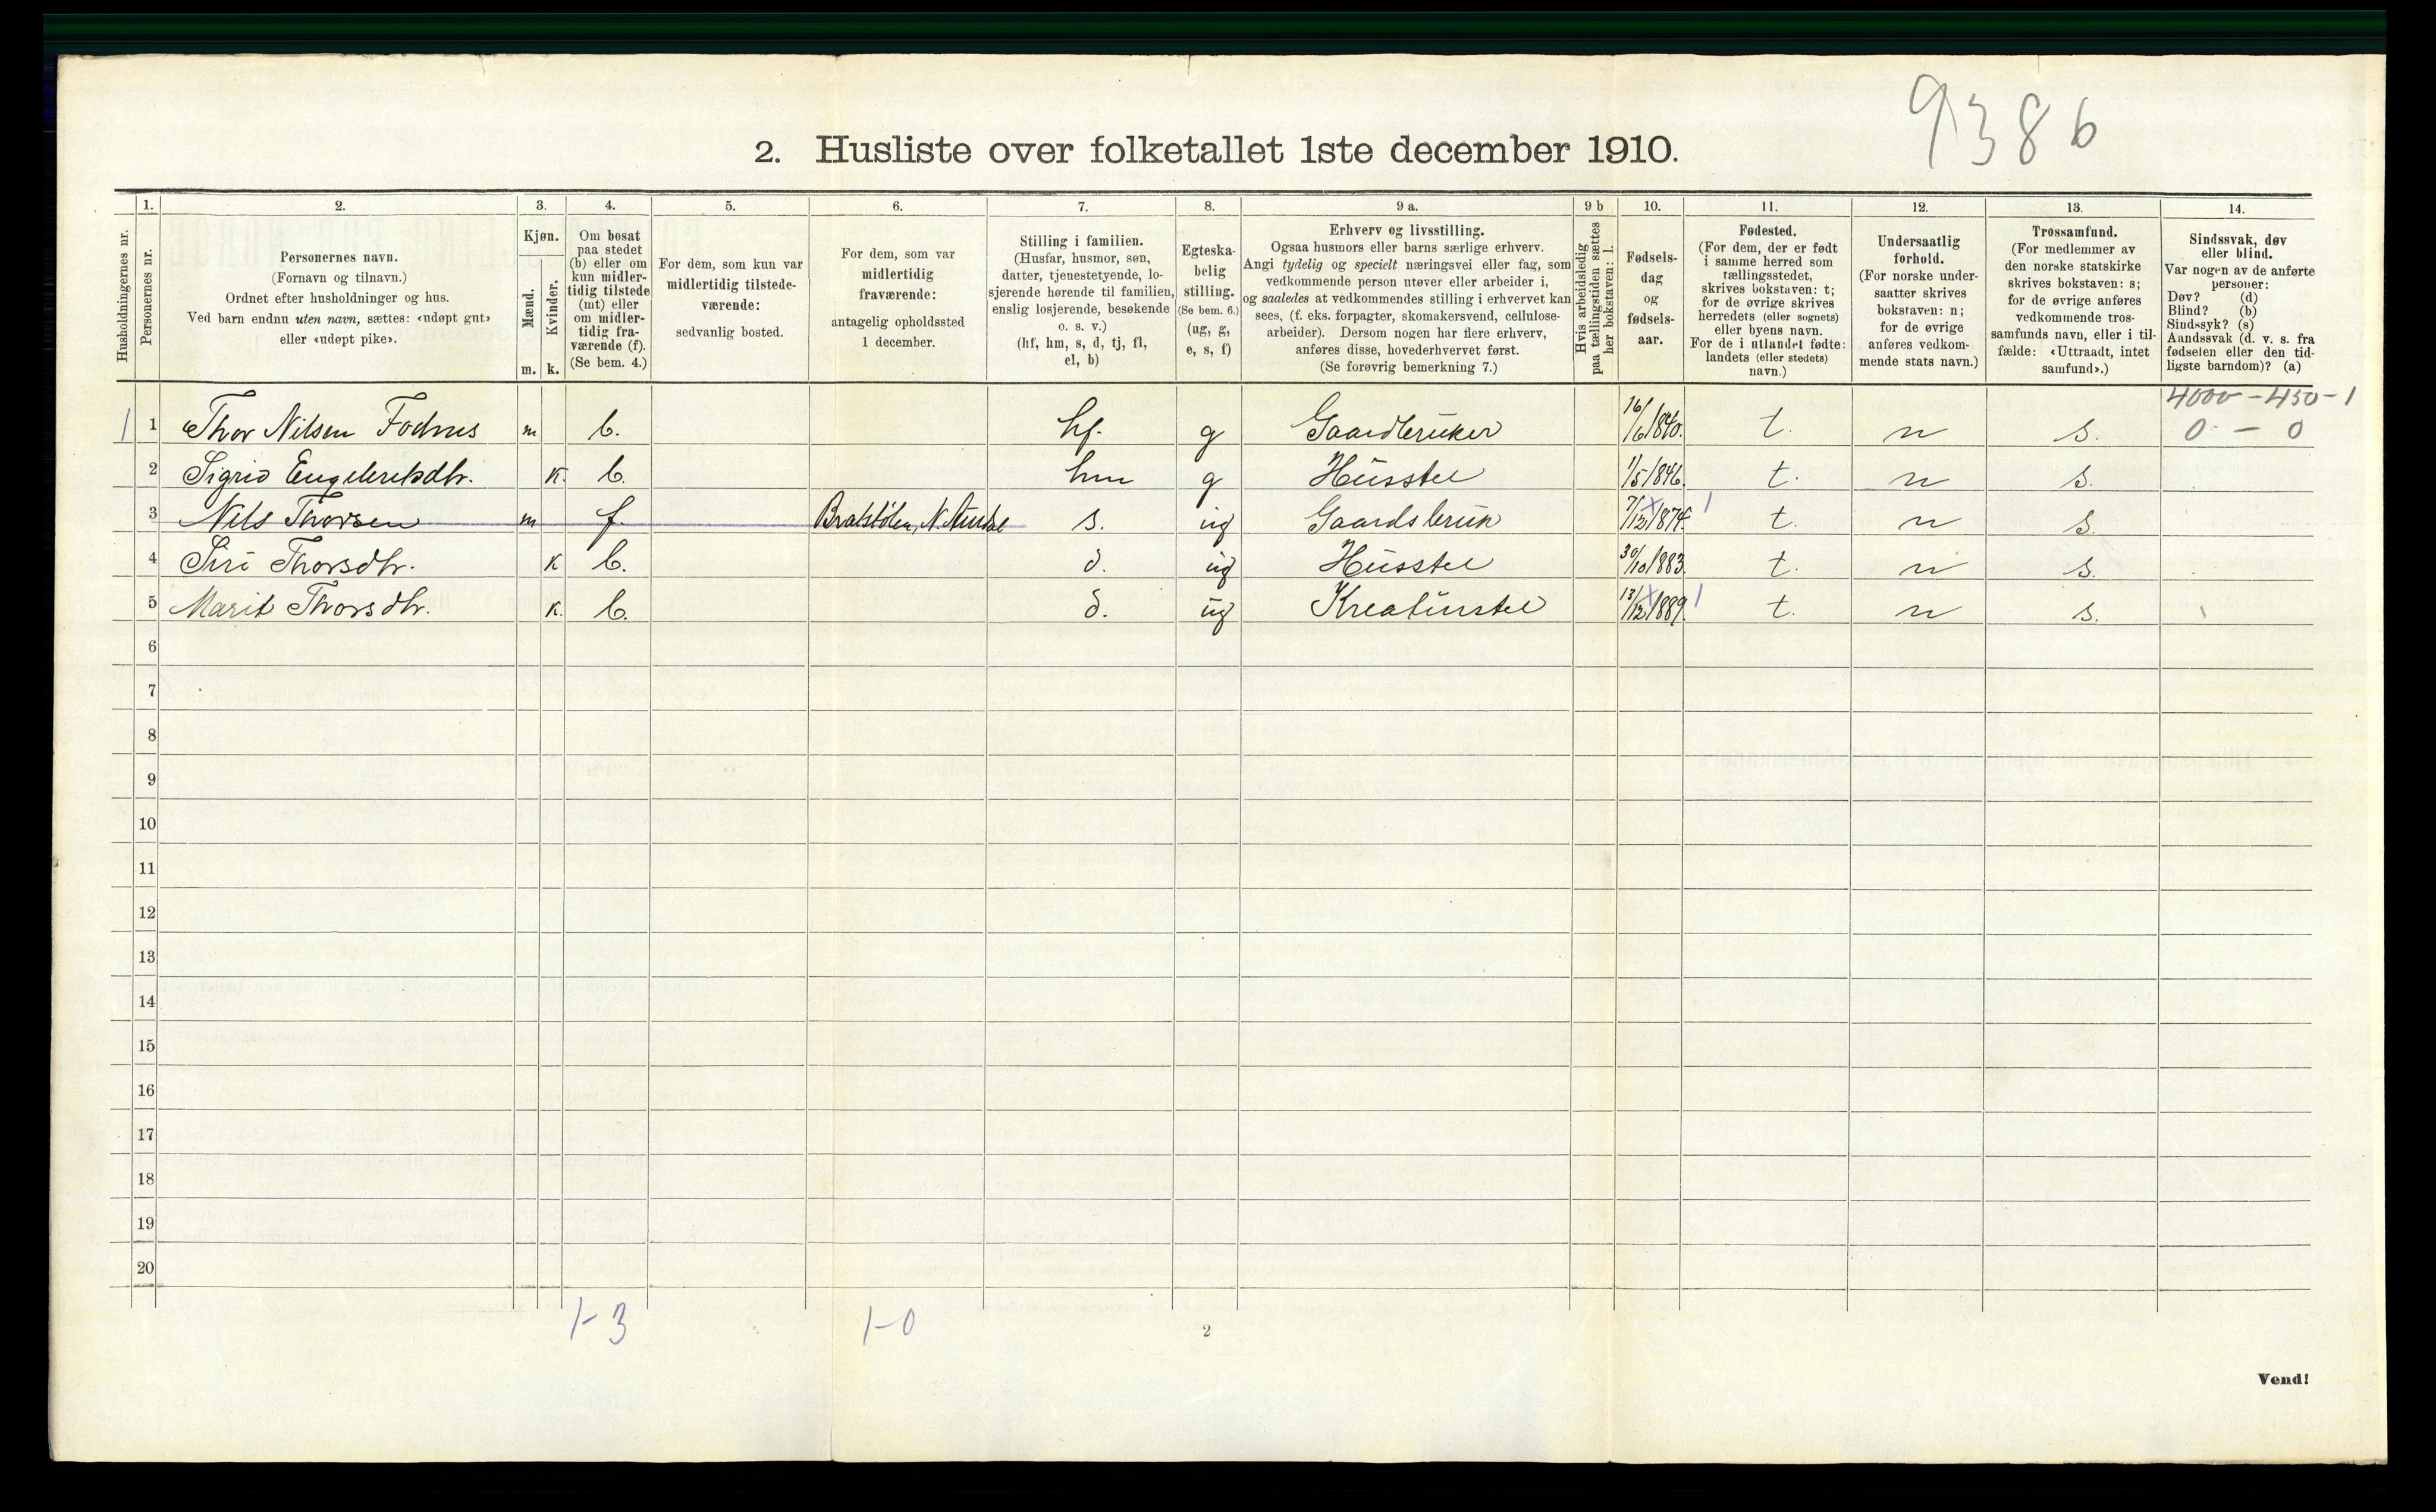 9386
2. Husliste over folketallet 1ste december 1910.
Husholdningernes nr.
1. Personernes nr.
2. Personernes navn.
(Fornavn og tilnavn.)
Ordnet efter husholdninger og hus.
Ved barn endnu uten navn, sættes: «udøpt gut»
eller «udøpt pike».
3. Kjøn.
Mænd. Kvinder.
m. k.
4. Om bosat
paa stedet
(b) eller om
kun midler-
tidig tilstede
(mt) eller
om midler-
tidig fra-
værende (f).
(Se bem. 4.)
5. For dem, som kun var
midlertidig tilstede-
værende:
sedvanlig bosted.
6. For dem, som var
midlertidig
fraværende:
antagelig opholdssted
1 december.
7. Stilling i familien.
(Husfar, husmor, søn,
datter, tjenestetyende, lo-
sjerende hørende til familien,
enslig losjerende, besøkende
o. s. v.)
(hf, hm, s, d, tj, fl,
el, b)
8. Egteska-
belig
stilling.
(Se bem. 6.)
(ug, g,
e, s, f)
9 a. Erhverv og livsstilling.
Ogsaa husmors eller barns særlige erhverv.
Angi tydelig og specielt næringsvei eller fag, som
vedkommende person utøver eller arbeider i,
og saaledes at vedkommendes stilling i erhvervet kan
sees, (f. eks. forpagter, skomakersvend, cellulose-
arbeider). Dersom nogen har flere erhverv,
anføres disse, hovederhvervet først.
(Se forøvrig bemerkning 7.)
9 b Hvis arbeidsledig
paa tællingstiden sættes
her bokstaven: l.
10. Fødsels-
dag
og
fødsels-
aar.
11. Fødested.
(For dem, der er født
i samme herred som
tællingsstedet,
skrives bokstaven: t;
for de øvrige skrives
herredets (eller sognets)
eller byens navn.
For de i utlandet fødte:
landets (eller stedets)
navn.)
12. Undersaatlig
forhold.
(For norske under-
saatter skrives
bokstaven: n;
for de øvrige
anføres vedkom-
mende stats navn.)
13. Trossamfund.
(For medlemmer av
den norske statskirke
skrives bokstaven: s;
for de øvrige anføres
vedkommende tros-
samfunds navn, eller i til-
fælde: «Uttraadt, intet
samfund».)
14. Sindssvak, døv
eller blind.
Var nogen av de anførte
personer:
Døv? (d)
Blind? (b)
Sindssyk? (s)
Aandssvak (d. v. s. fra
fødselen eller den tid-
ligste barndom)? (a)
4000 - 450 - 1
1 1 Thor Nilsen Fodnes m b. hf. g Gaardbruker 16/6 1840. t. n s. 0 - 0
2 Sigrid Engebretsdtr. k. b. hm g Husstel 1/5 1846. t. n s.
3 Nils Thorsen m f. s. ug Gaardsbruk 7/12 1874. 1 t. n s.
4 Siri Thorsdtr. k b. d. ug Husstel 30/10 1883. t. n s.
5 Marit Thorsdtr. k. b. d. ug Kreaturstel 13/12 1889. 1 t. n s.
6
7
8
9
10
11
12
13
14
15
16
17
18
19
20
1-3 1-0
2
Vend!